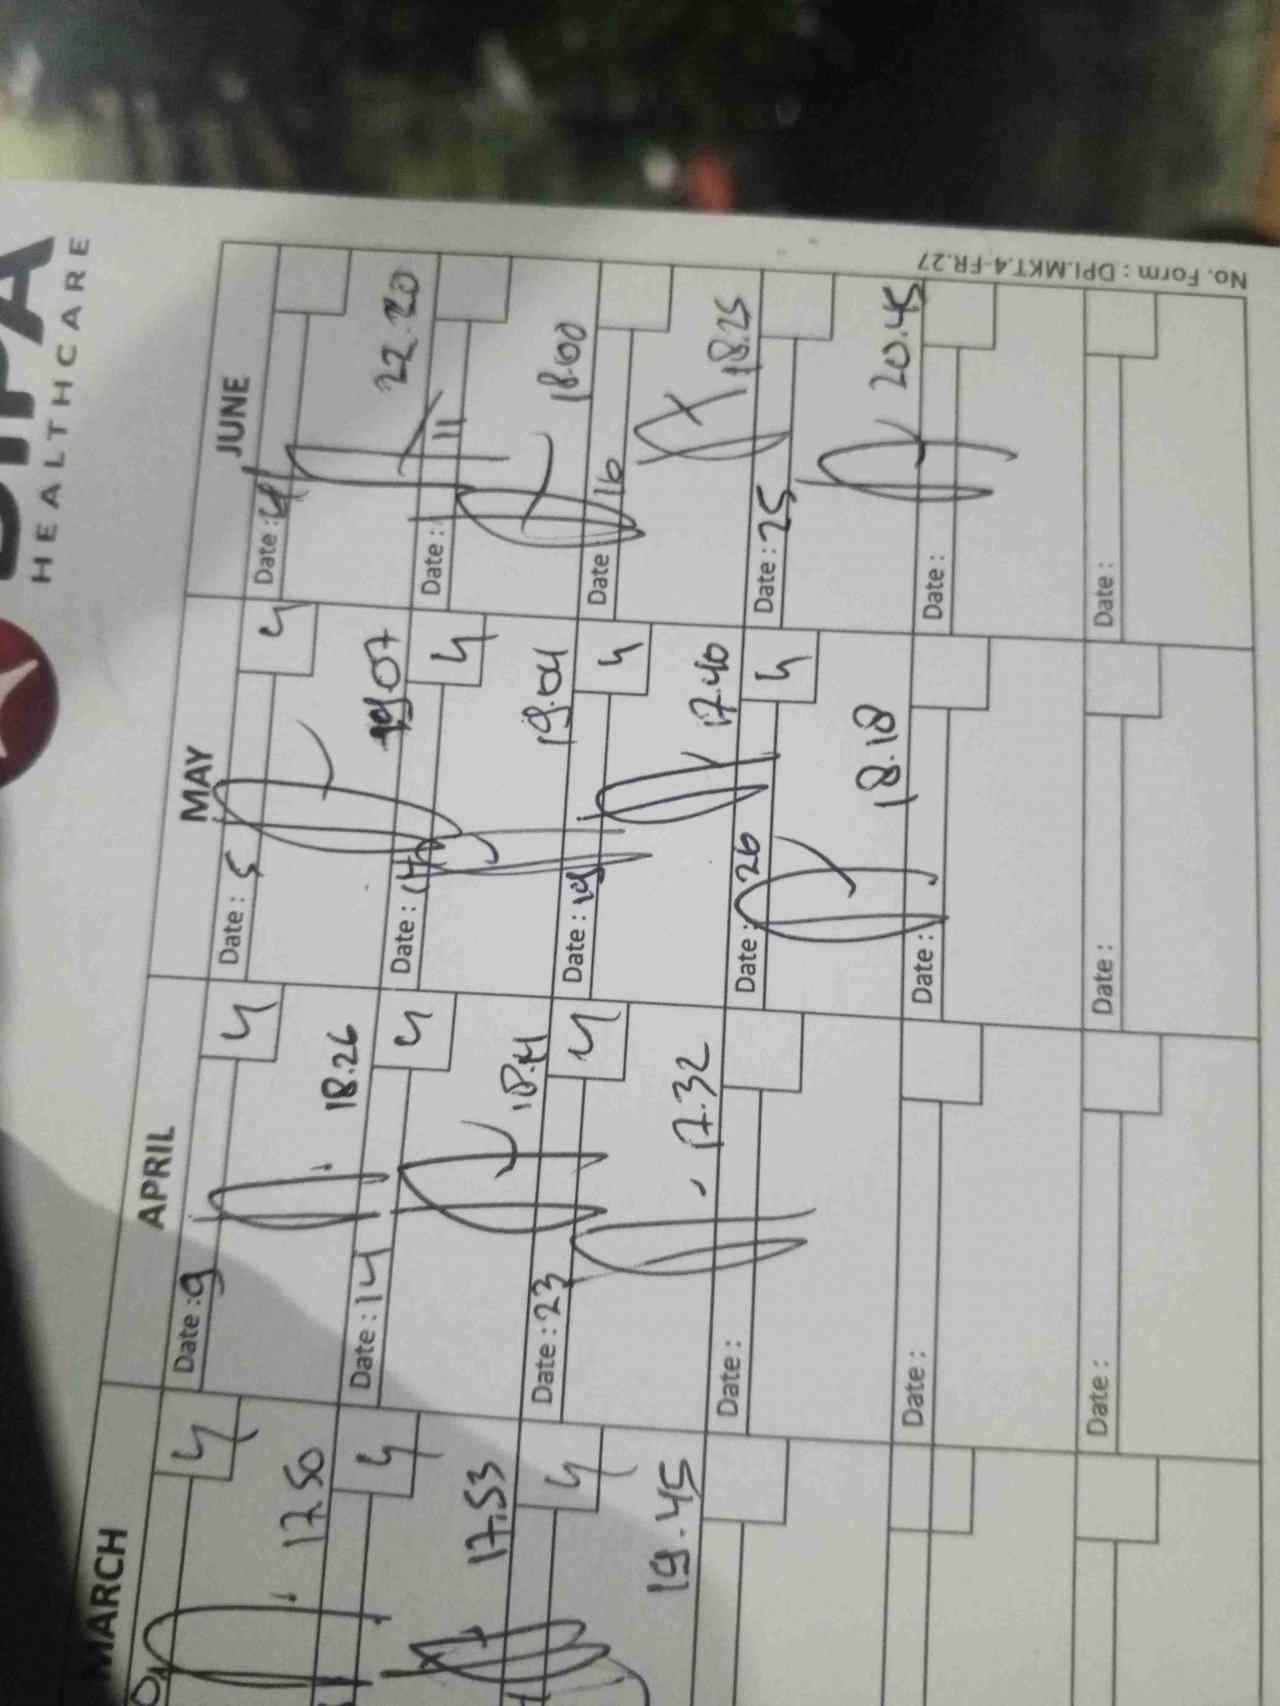 HEALTHCARE
MARCH APRIL MAY JUNE
Date: 9 4 Date: 5 4 Date: 4
4
17.50 18.26 19.07 22.20
Date: 14 4 Date: 14 4 Date: 11
4
17.53 18.41 19.04 18.00
Date: 23 4 Date: 19 4 Date 16
4
19.45 17.32 17.40 18.25
Date: Date: 26 4 Date: 25
18.18 20.45
Date: Date: Date:
Date: Date: Date:
No. Form : DPI.MKT.4-FR.27